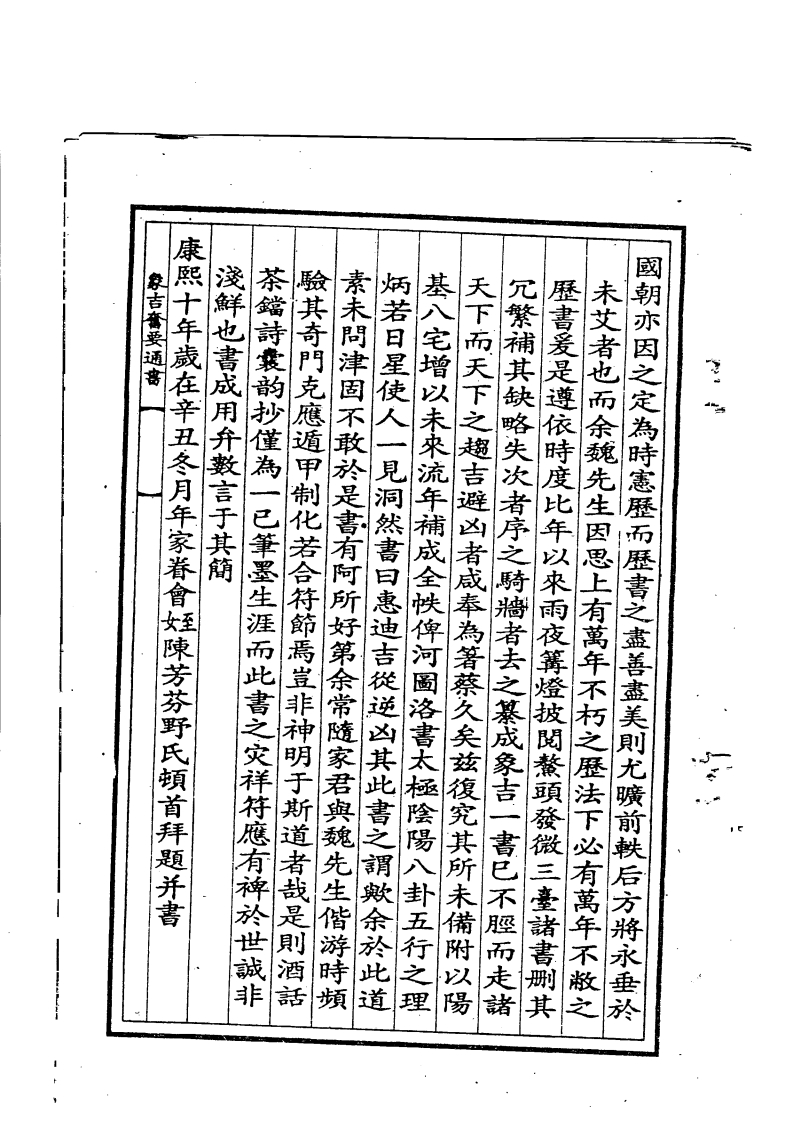 國朝亦因之定為時憲歷而歷書之盡善盡美則尤曠前軼后方將永垂於
未艾者也而余魏先生因思上有萬年不朽之歷法下必有萬年不敝之
歷書爰是遵依時度比年以來雨夜篝燈披閱鰲頭發微三臺諸書刪其
冗繁補其缺略失次者序之騎牆者去之纂成象吉一書已不脛而走諸
天下而天下之趨吉避凶者咸奉為箸蔡久矣茲復究其所未備附以陽
基八宅增以未來流年補成全帙俾河圖洛書太極陰陽八卦五行之理
炳若日星使人一見洞然書曰惠迪吉從逆凶其此書之謂歟余於此道
素未問津固不敢於是書有阿所好第余常隨家君與魏先生偕游時頻
驗其奇門克應遁甲制化若合符節焉豈非神明于斯道者哉是則酒話
茶鐺詩囊韵抄僅為一已筆墨生涯而此書之灾祥符應有裨於世誠非
淺鮮也書成用弁數言于其簡
康熙十年歲在辛丑冬月年家眷會姪陳芳芬野氏頓首拜題并書
象吉備要通書